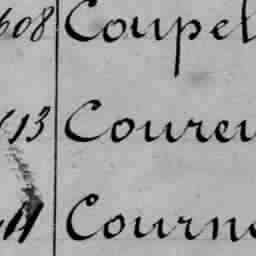 608 Coupel
613 Coureu
Courne